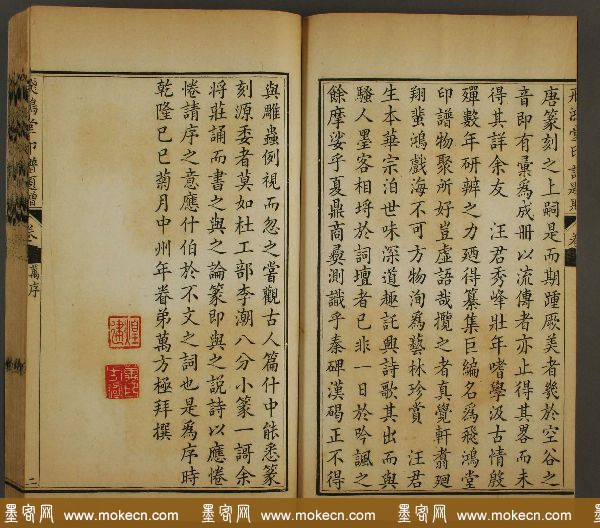 唐篆刻之上嗣是而期踵厥美者幾於空谷之
音即有彙爲成冊以流傳者亦止得其畧而未
得其詳余友　汪君秀峰壯年嗜學汲古情殷
殫數年研辨之力廼得纂集巨編名爲飛鴻堂
印譜物聚所好豈虛語哉攬之者真覺軒翥廻
翔蜚鴻戲海不可方物洵爲藝林珍賞　汪君
生本華宗泊世味深道趣託興詩歌其出而與
騷人墨客相埒於詞壇者已非一日於吟諷之
餘摩挲乎夏鼎商彞測識乎秦碑漢碣正不得
與雕蟲例視而忽之嘗觀古人篇什中能悉篆
刻源委者莫如杜工部李潮八分小篆一謌余
將莊誦而書之與之論篆即與之說詩以應惓
惓請序之意應什伯於不文之詞也是爲序時
乾隆己巳菊月中州年眷弟萬方極拜撰
飛鴻堂印譜
卷
萬序
二
墨客网 www.mokecn.com 墨客网 www.mokecn.com 墨客网 www.mokecn.com